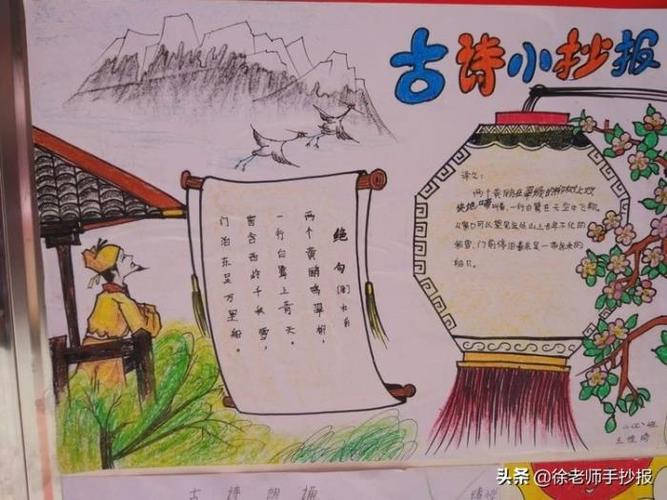 古诗小抄报
绝句
两个黄鹂鸣翠柳,
一行白鹭上青天。
窗含西岭千秋雪,
门泊东万里船。
译文:
两个黄鹂在翠绿的柳树上欢
快地鸣叫着,一行白鹭在天空中飞翔。
从窗口可以望见岷山上千年不化的
积雪,门前停泊着
船只。
古诗
头条 @徐老师手抄报